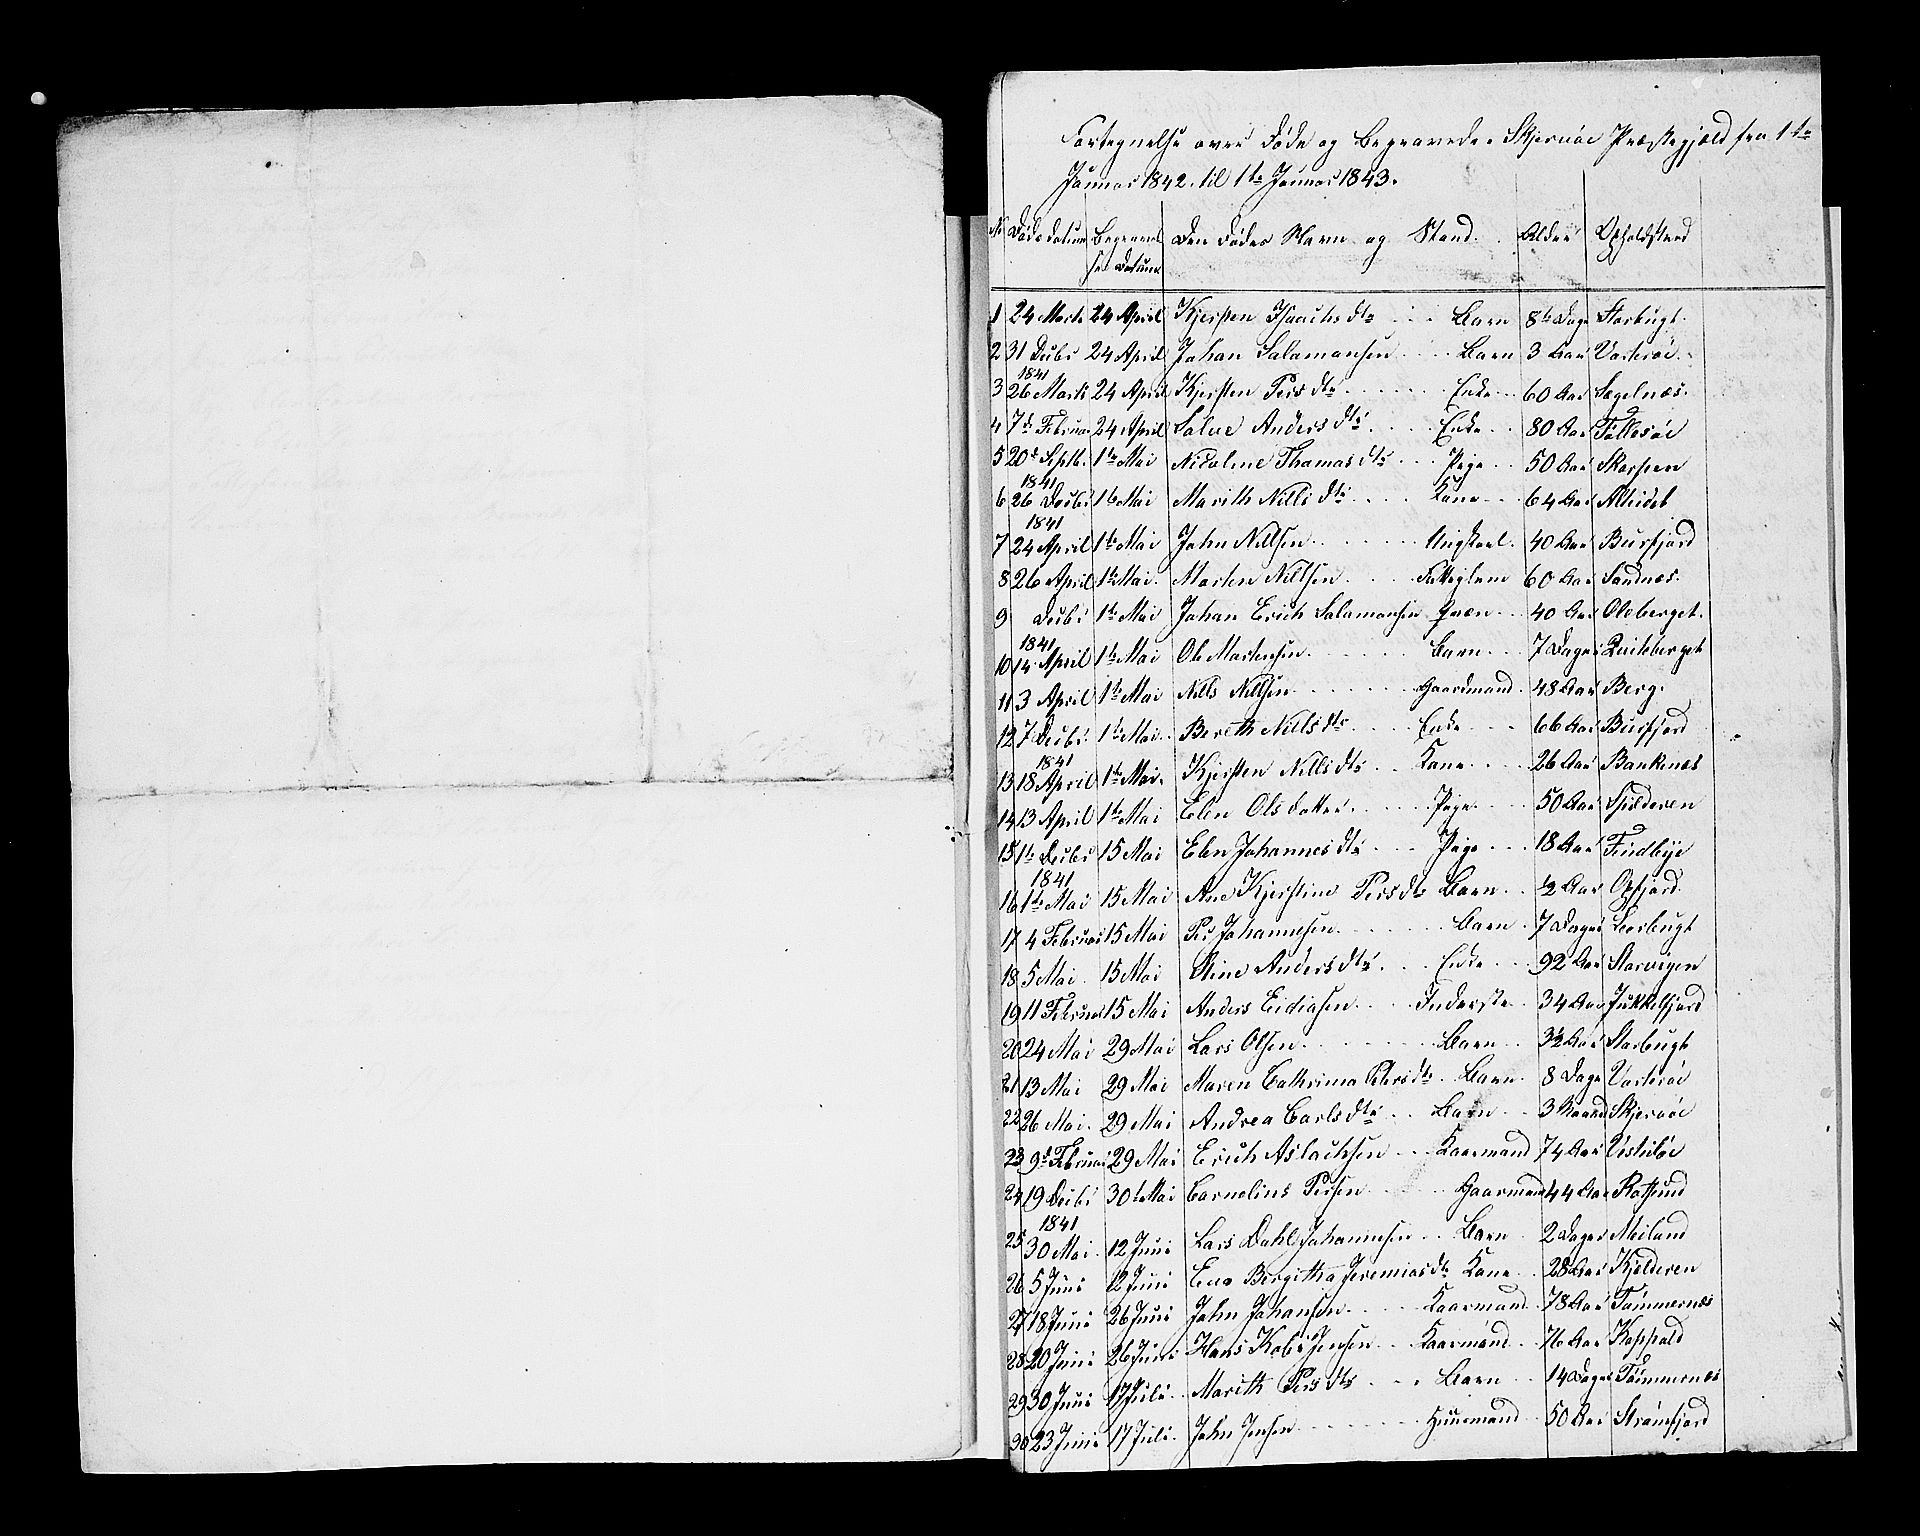 Fortegnelse over Døde og Begravede i Skjervøe Præstegjæld fra 1te
Januar 1842. til 1te Januar 1843.
No Døds datum Begravel Den Dødes Navn og Stand. Alder Opholdsted
se Datum
1 24 Marts 24 April Kjersten Isaachs dtr Barn 8te Dage Storbugt.
2 31 Decbr 24 April Johan Salamonsen Barn 3 Aar Vorterøe.
1841
3 26 Marts 24 April Kjersten Pers dtr Enke 60 Aar Segelnæs.
4 7de Februar 24 April Enke 80 Aar
5 20de Septb. 1te Mai Nicoline Thomas dtr Pige 50 Aar
1841
6 26 Decbr 16 Mai Marith Nills dtr Kone 64 Aar Alteidet
1841
7 24 April 1te Mai John Nillsen Ungkarl. 40 Aar Burfjord
8 26 April 1te Mai. Morten Nillsen Fattiglem 60 Aar Sandnæs.
9 Decbr 1te Mai Johan Erich Salamonsen Qvæn 40 Aar Oleberget.
1841
10 14 April 1te Mai Ole Mortensen Barn 7 Dage
11 3 April 1te Mai Nills Nillsen Gaardmand. 48 Aar Berg.
12 7 Decbr. 1te Mai. Bereth Nills dtr Enke 66 Aar Burfjord
1841
13 18 April 1te Mai. Kjersten Nills dtr Kone 26 Aar Bankenæs
14 13 April 1te Mai Elen Ols datter Pige 50 Aar Spilderen
15 1te Decbr 15 Mai Elen Johannes dtr Pige 18 Aar Findbye
1841
16 1te Mai 15 Mai Ane Kjerstine Pers dtr Barn ½ Aar Oxfjord.
17 4 Februar 15 Mai Per Johannesen Barn 7 Dage
18 5 Mai 15 Mai Stine Anders dtr Enke 92 Aar Storvigen
19 11 Februar 15 Mai Anders Inderste 34 Aar Jukkelfjord
20 24 Mai 29 Mai Lars Olsen Barn 3½ Aar Storbugt
21 13 Mai 29 Mai Maren Cathrina Peters dtr Barn 8 Dage Vorterøe
22 26 Mai. 29 Mai Andrea Carls dtr Barn 3 Maand Skjervøe
23 9de Februar 29 Mai Erich Aslachsen Kaarmand 74 Aar
24 19 Decbr 30te Mai Cornelius Persen Gaarmand 44 Aar Rotsund
1841
25 30 Mai 12 Juni Lars Dahl Johannesen Barn 2 Dage Meiland
26 5 Juni 12 Juni Eva Bergitha Jeremias dtr Kone 28 Aar Kjelderen
27 18 Juni 26 Juni John Johansen Kaarmand. 78 Aar Tømmernæs
28 20 Juni 26 Juni Hans Jensen Kaarmand 76 Aar
29 30 Juni 17 Juli Marith Pers dtr Barn 14 Dage Tømmernæs
30 23 Juni 17 Juli. John Jensen Huusmand 50 Aar Strømfjord